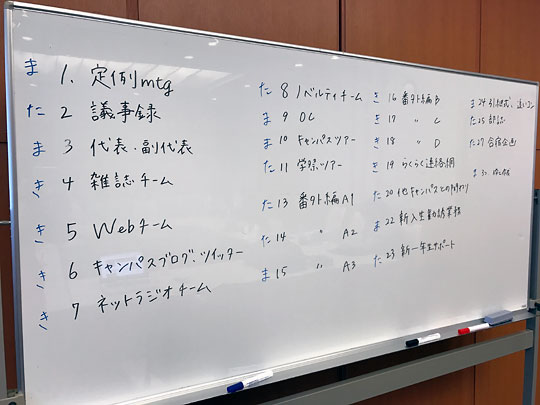 ま 1. 定例mtg
た 2 議事録
ま 3 代表・副代表
き 4 雑誌チーム
き 5 Webチーム
き 6 キャンパスブログ・ツイッター
き 7 ネットラジオチーム
た 8 ノベルティチーム
ま 9 OC
ま 10 キャンパスツアー
た 11 学祭ツアー
た 13 番外編A1
た 14 〃 A2
ま 15 〃 A3
き 16 番外編B
き 17 〃 C
き 18 〃 D
き 19 らくらく連絡網
た 20 他キャンパスとの関わり
ま 22 新入生勧誘業務
た 23 新一年生サポート
ま 24 引継式、追いコン
た 25 部誌
た 27 合宿企画
ま